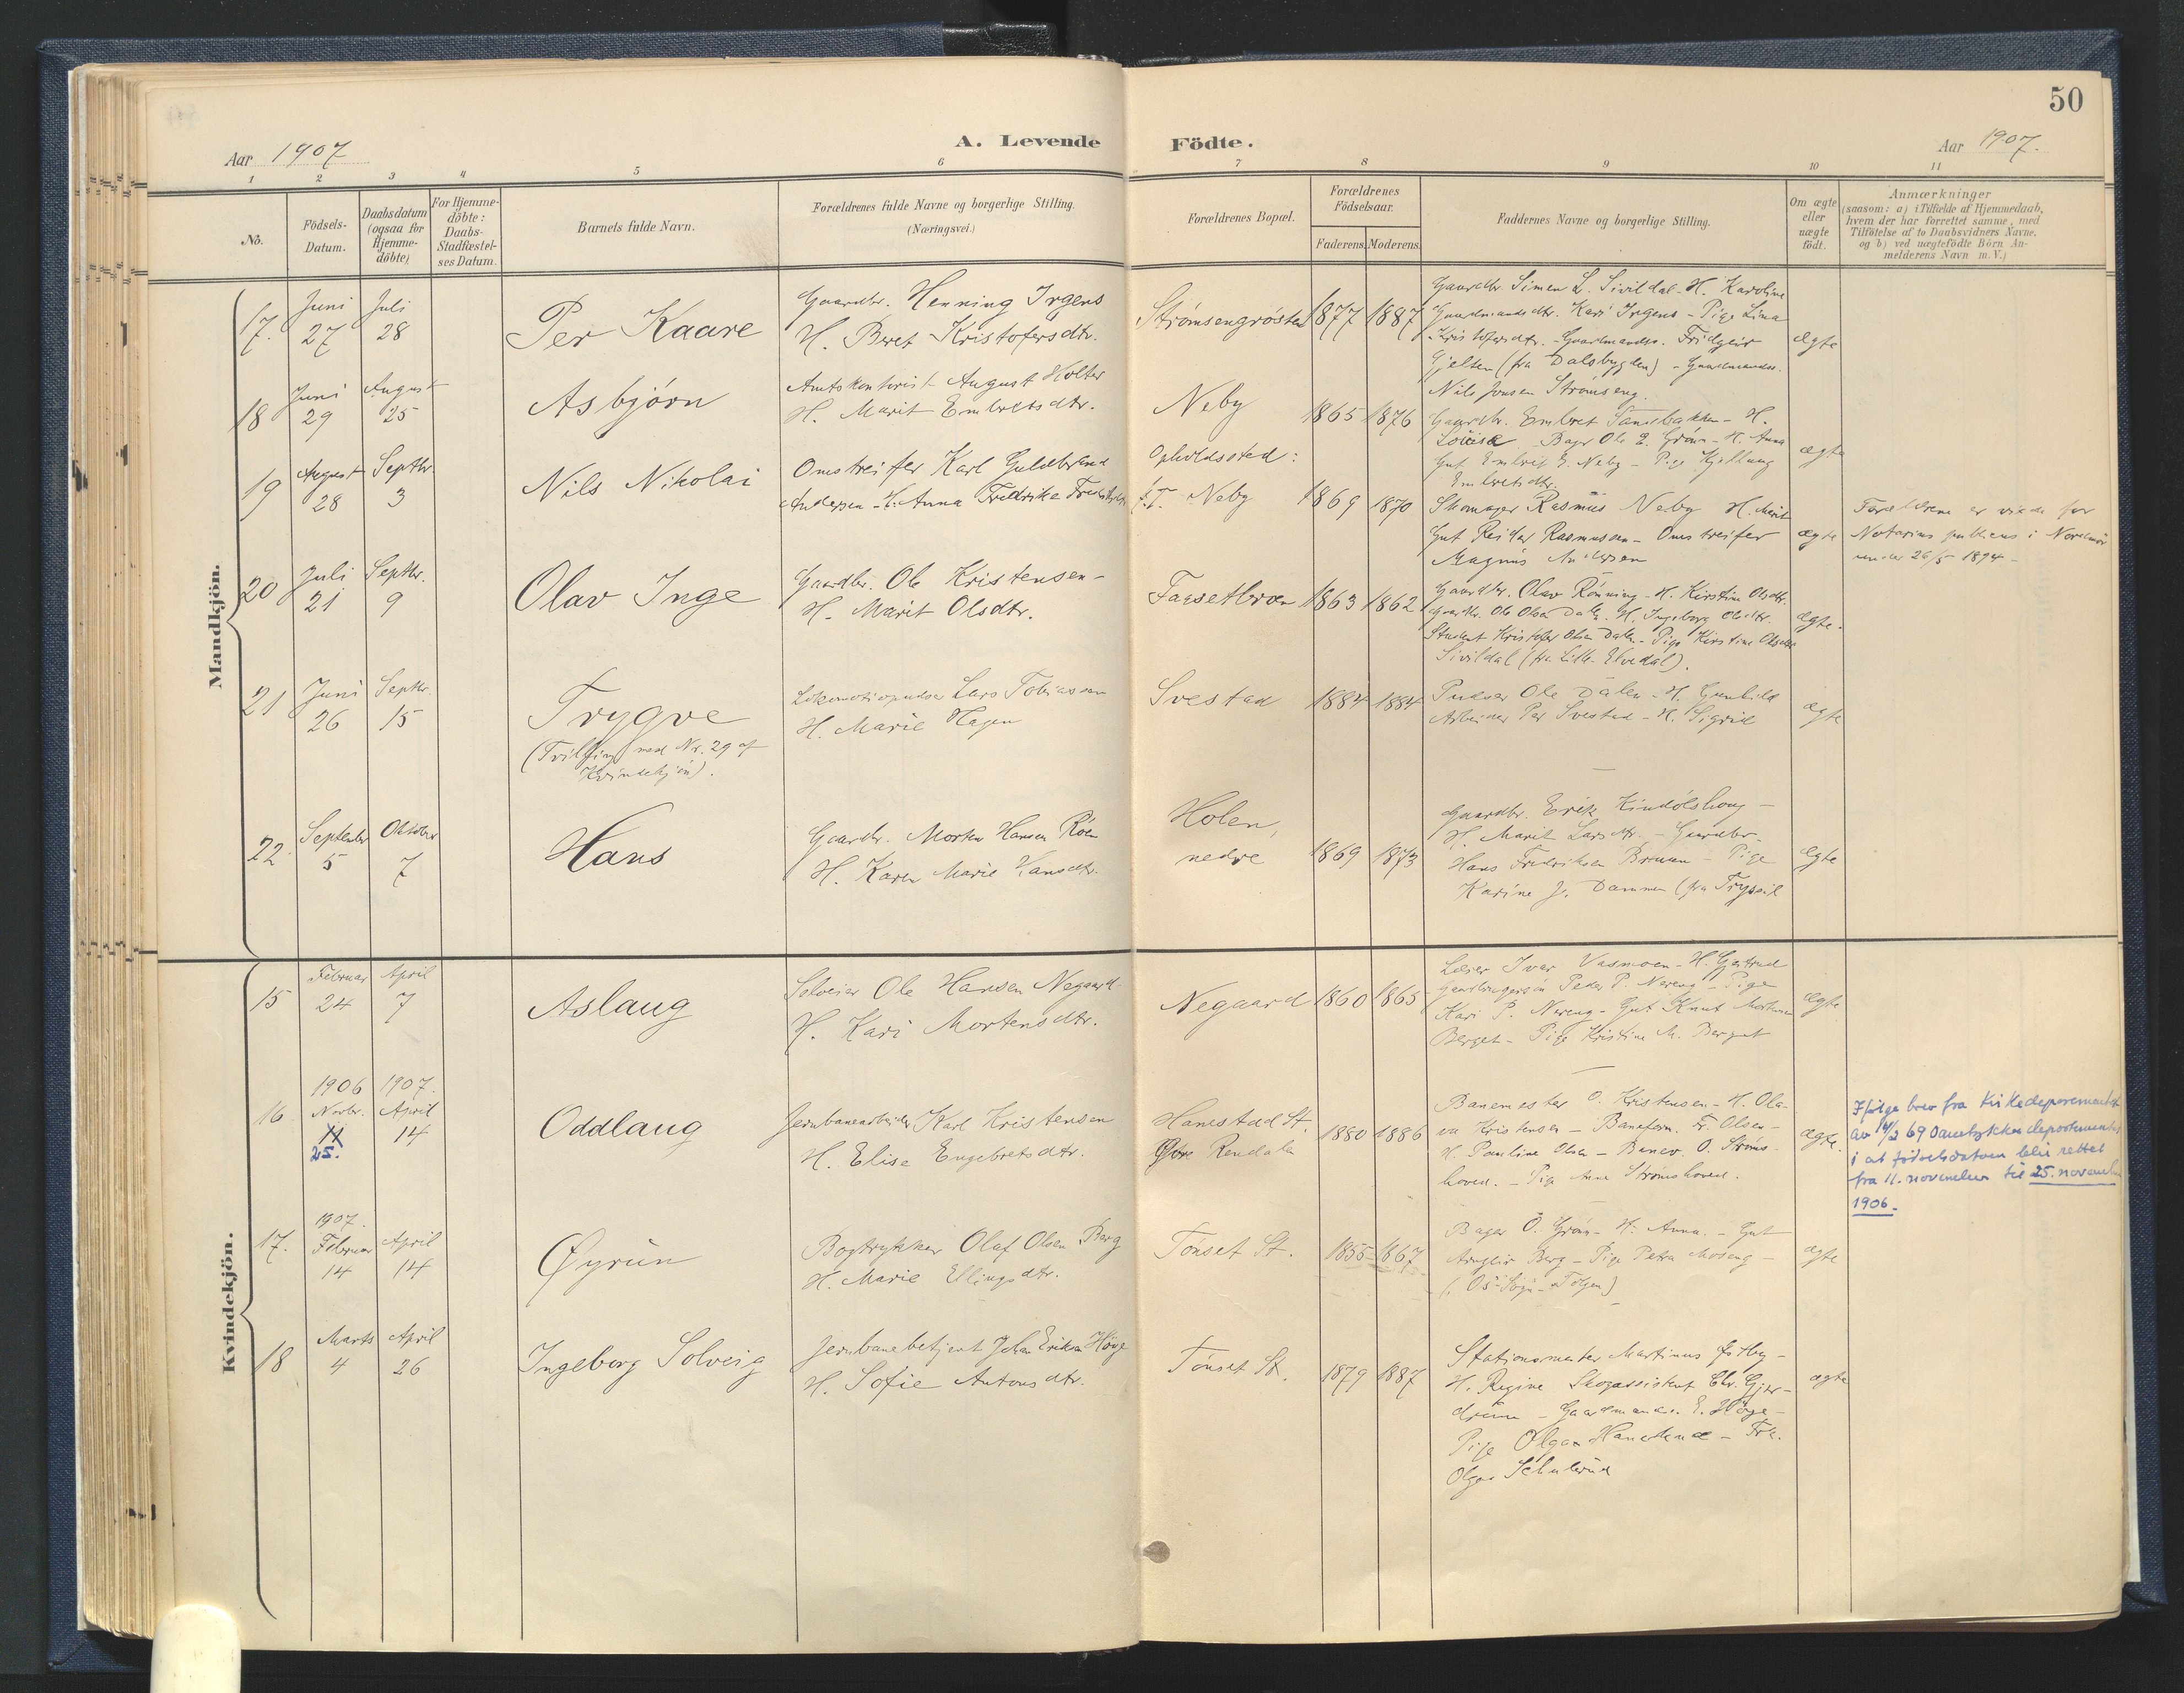 50
Aar 1907
A. Levende Födte.
Aar 1907.
1 2 3 4 5 6 7 8 9 10 11
No.
Födsels-
Datum.
Daabsdatum
(ogsaa for
Hjemme-
döbte)
For Hjemme-
döbte:
Daabs-
Stadfæstel-
ses Datum.
Barnets fulde Navn.
Forældrenes fulde Navne og borgerlige Stilling.
(Næringsvei.)
Forældrenes Bopæl.
Forældrenes
Födselsaar.
Faderens. Moderens.
Faddernes Navne og borgerlige Stilling.
Om ægte
eller
uægte
födt.
Anmærkninger
(saasom: a) i Tilfælde af Hjemmedaab,
hvem der har forrettet samme, med
Tilföielse af to Daabsvidners Navne,
og b) ved uægtefödte Börn An-
melderens Navn m.V.)
Mandkjön.
17. Juni 27 Juli 28
Per Kaare
Gaardbr. Henning Irgens
H. Beret Kristofersdtr.
Strømsengrøsten
1877 1887
Gaardbr Simen L. Sivildal - H. Karoline
Gaardmandsdtr. Kari Irgens - Pige Lina
Kristofersdtr. - Gaardmands. Fridgeir
Gjelten (fra Dalsbygden) - Gaardmands.
Nils Jonsen Strømseng.
ægte
18 Juni 29 August 25
Asbjørn
Amtskontorist August Holter
H. Marit Embretsdtr.
Neby
1865 1876
Gaardbr. Embret Sandbakken - H.
Lovise Bager Ole E. Grøn - H. Anna
Gut Embret E. Neby - Pige Kjellaug
Embretsdtr.
ægte
19 August 28 Septbr. 3
Nils Nikolai
Omstreifer Karl Guldbrand
Andersen - H. Anna Fredrikke
Opholdssted:
f.T. Neby
1869 1870
Skomager Rasmus Neby H. Marit
Gut Reidar Rasmussen - Omstreifer
Magnus Andersen
ægte
Forældrene er viede for
Notarius publicus i
under 26/5 1894 -
20 Juli 21 Septbr. 9
Olav Inge
Gaardbr. Ole Kristensen -
H. Marit Olsdtr.
Faasetbroen
1863 1862
Gaardbr. Olav Rønning - H. Kirstine Olsdtr.
Gaardbr. Ole Olsen Dalen H. Ingeborg Olsdtr.
Student Kristofer Olsen Dalen - Pige Kirstine Olsdtr.
Sivildal (fra Lille-Elvedal).
ægte.
21 Juni 26 Septbr. 15
Trygve
(Tvilling med Nr. 29 af
Kvindekjön).
Lokomotivpudser Lars Tobiassen
H. Marie Hagen
Svestad
1884 1884
Pudser Ole Dalen - H. Gunhild
Arbeider Per Svestad - H. Sigrid
ægte
22. September 5 Oktober 7
Hans
Gaardbr. Morten Hansen Røen
H. Karen Marie Hansdtr.
Holen,
nedre
1869 1873
Gaardbr. Erik Kindølshaug -
H. Marit Larsdtr. - Gaardbr.
Hans Fredriksen Bruun - Pige
Karine J. Dammen (fra Trysil
ægte
Kvindekjön.
15 Februar 24 April 7
Aslaug
Selveier Ole Hansen Negaard.
H. Kari Mortensdtr.
Negaard
1860 1865
Lærer Ivar Vasmoen - H. Gjertrud
Gaardbrugersøn Peder P. Nereng - Pige
Kari P. Nereng - Gut Knut Mortensen
Berget - Pige Kristine M. Berget
ægte
16 1906 Novbr. 11 25. 1907. April 14
Oddlaug
Jernbanearbeider Karl Kristensen
H. Elise Engebretsdtr.
Hanestad St.
Øvre Rendalen
1880 1886
Banemester O. Kristensen - H. Ola-
va Kristensen - Baneform. Fr. Olsen -
H. Pauline Olsen - Banev. O. Strøms-
hoved. - Pige Anna Strømshoved.
ægte.
Ifølge brev fra Kirkedepartementet
av 14/2 69 samtykker departementet
i at fødselsdatoen blir rettet
fra 11. november til 25. november
1906.
17. 1907. Februar 14 April 14
Øyrun
Bogtrykker Olaf Olsen Berg
H. Marie Ellingsdtr.
Tønset St.
1855 1867
Bager O. Grøn - H. Anna. - Gut
Arngeir Berg - Pige Petra Moseng -
(Os Sogn - Tolgen)
ægte
18 Marts 4 April 26
Ingeborg Solveig
Jernbanebetjent Johan Eriksen Høye
H. Sofie Antonsdtr.
Tønset St.
1879 1887
Stationsmester Martinus Østby -
H. Regine Skogassistent Chr. Gjer-
drum - Gaardmands. E. Høye -
Pige Olga Hanestad - Frk.
Olga Schulerud
ægte